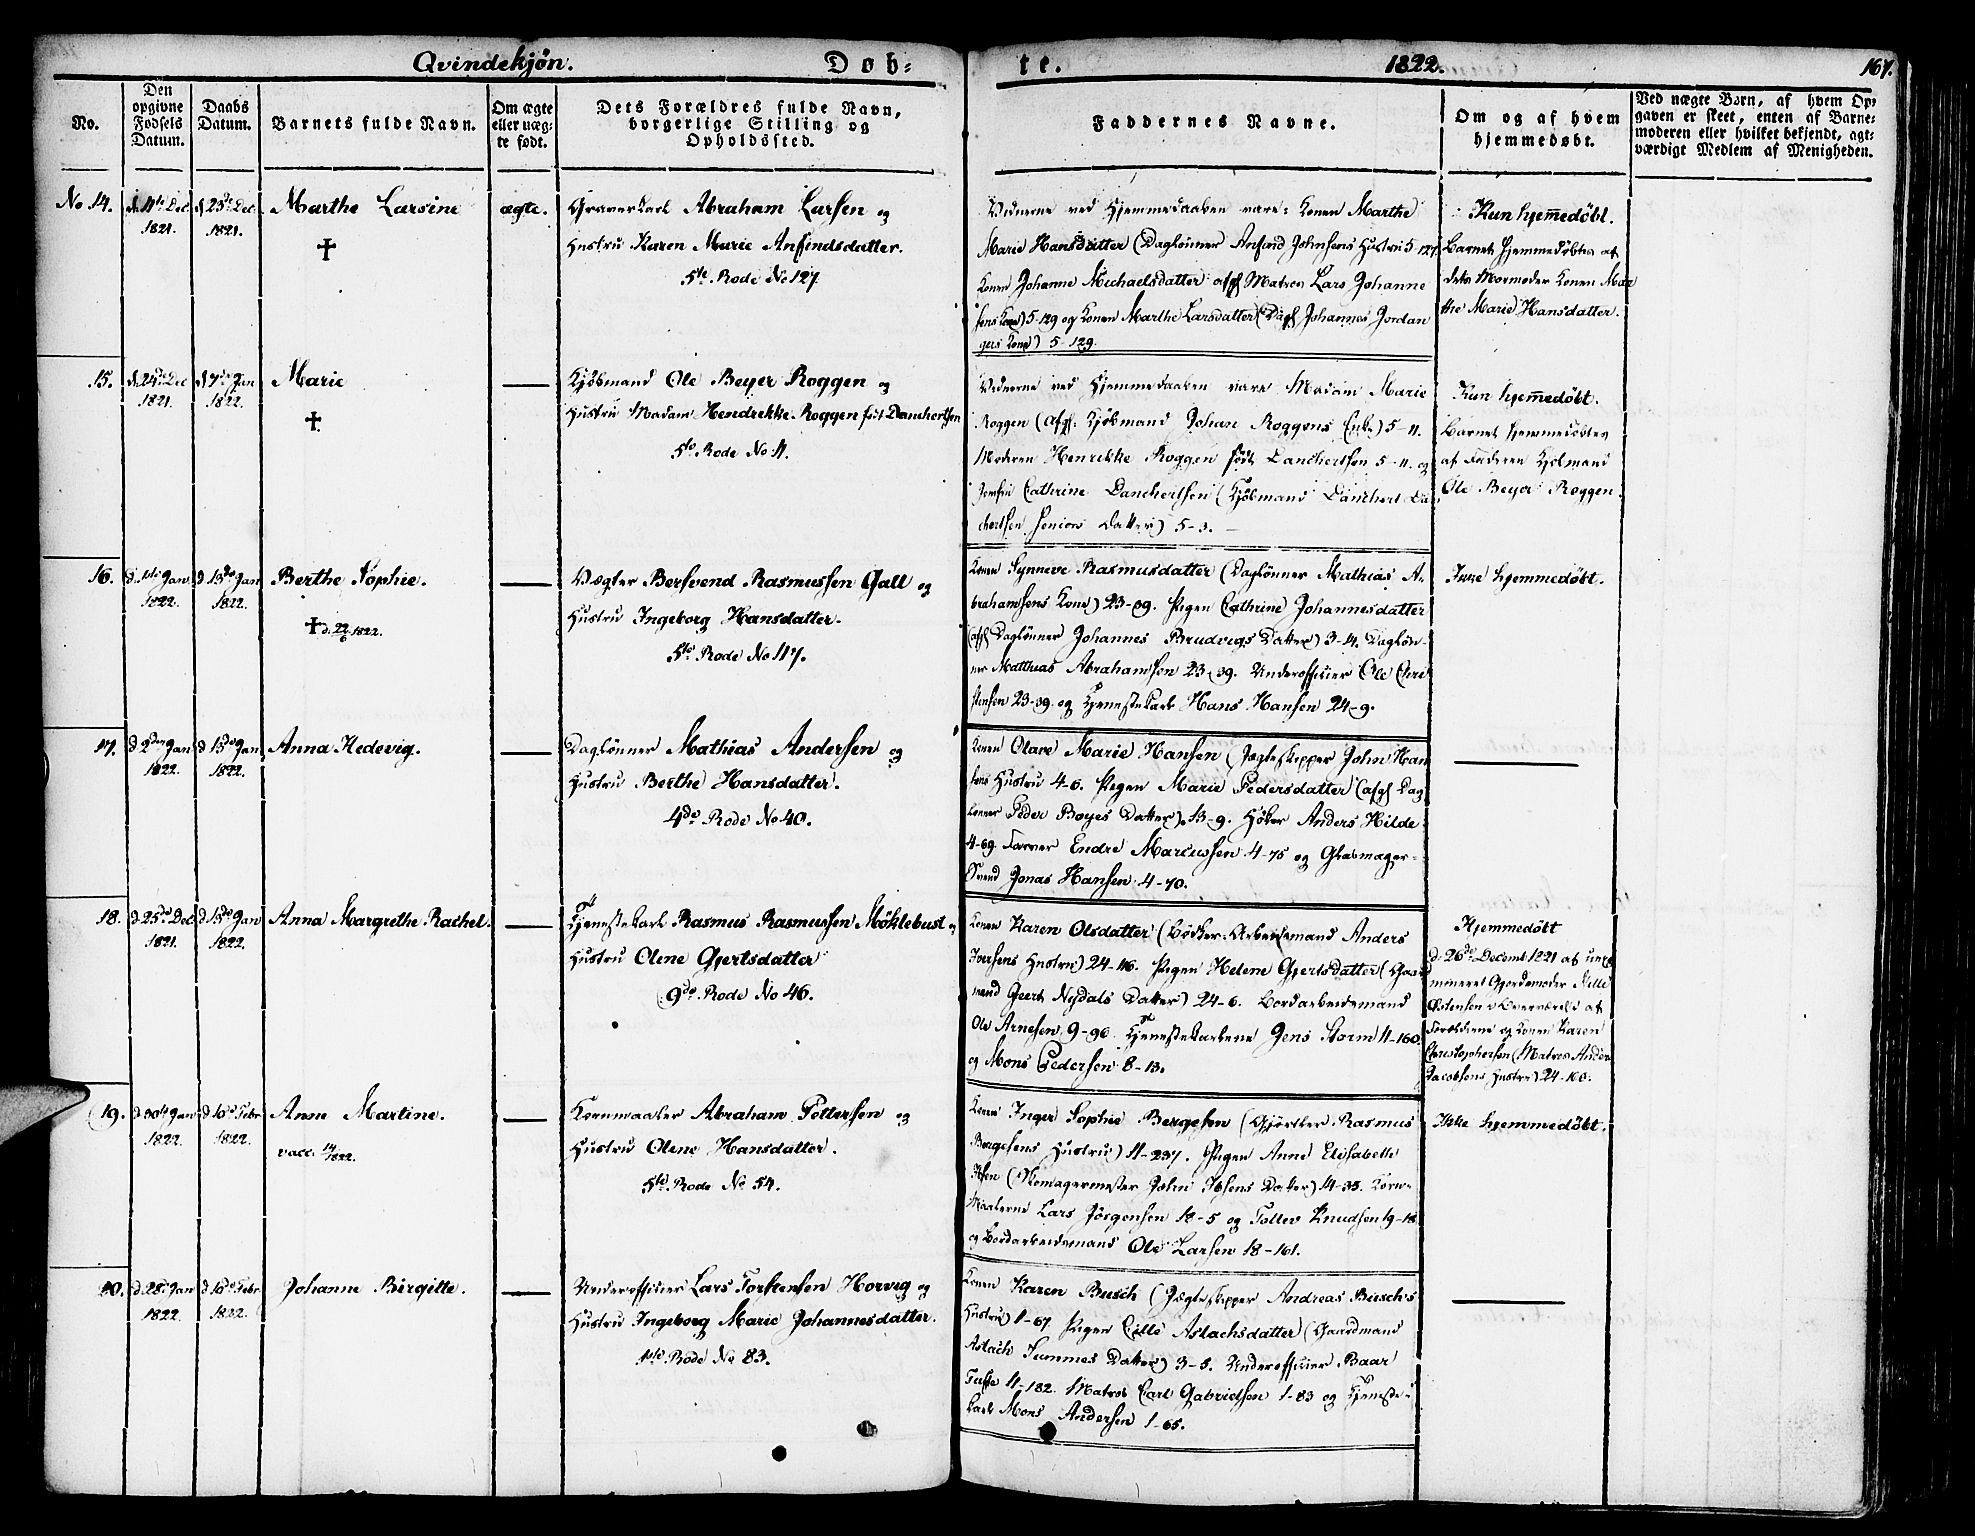 Qvindekjøn.
Døb-
te.
1822.
167.
No.
Den opgivne Fødsels Datum.
Daabs Datum.
Barnets fulde Navn.
Om ægte eller uæg-te født.
Dets Forældres fulde Navn, borgerlige Stilling og Opholdssted.
Faddernes Navne.
Om og af hvem hjemmedøbt.
Ved uægte Børn, af hvem Op-
gaven er skeet, enten af Barne-
moderen eller hvilket bekjendt, agt-
værdigt Medlem af Menigheden.
No 14.
d. 11te Dec 1821.
d 23de Dec 1821.
Marthe Larsine
✝
ægte.
Graverkarl Abraham Larsen og
Hustru Karen Marie Anfindsdatter.
5te Rode No 127.
Vidnerne ved Hjemmedaaben vare: Konen Marthe
Marie Hansdatter (Daglönner Anfind Johnsens Hustru 5-127.
Konen Johanne Michaelsdatter afg Matros Lars Johanne
sens Kone) 5-129 og Konen Marthe Larsdatter (Dagl Johannes Jordan
gers Kone) 5-129.
Kun hjemedøbt.
Barnet hjemmedøbtes af
dets Mormoder Konen Mar
the Marie Hansdatter.
15.
d 24de Dec 1821.
d 7de Jan 1822.
Marie
✝
Kjøbmand Ole Beyer Roggen og
Hustru Madam Hendrikke Roggen föt Danchertsen
5te Rode No 11.
Vidnerne ved Hjemmedaaben vare Madam Marie
Roggen (afg: Kjøbmand Johan Roggens Enke) 5-11.
Moderen Henrikke Roggen född Danchertsen 5-11. og
Jomfru Cathrine Danchertsen (Kjøbmand Danchert Da
chertsen seniors Datter) 5-3.
Kun hjemedøbt.
Barnet hjemmedøbtes
af Faderen Kjøbmand
Ole Beyer Roggen.
16.
d. 1ste Jan 1822.
d 13de Jan 1822.
Berthe Sophie.
✝ d. 22/6 1822.
Vægter Bersvend Rasmussen Gall og
Hustru Ingeborg Hansdatter.
5te Rode No 117.
Konen Synneve Rasmusdatter (Daglönner Mathias A-
brahamsens Kone) 23-39. Pigen Cathrine Johannesdatter
(afg Daglönner Johannes Brudvigs Datter) 3-4. Daglön-
ner Matthias Abrahamsen 23-39. Underofficier Ole Chri
stensen 23-39. og Tjenestekarl Hans Hansen 24-9.
Ikke hjemmedøbt.
17.
d 2den Jan 1822.
d 13de Jan 1822.
Anna Hedevig.
Daglönner Mathias Andersen og
Hustru Berthe Hansdatter.
4de Rode No 40.
Konen Olave Marie Hansen (Jægteskipper John Han
sens Hustru 4-6. Pigen Marie Pedersdatter (afg Dag
lönner Peder Boyes Datter). 13-9. Höker Anders Hilde
4-69. Farver Endre Marcussen 4-75 og Glasmager-
Svend Jonas Hansen 4-70.
18.
d 25de Dec 1821.
d 13de Jan 1822.
Anna Margrethe Rachel.
Tjenestekarl Rasmus Rasmussen Möklebust og
Hustru Olene Gjertsdatter
9de Rode No 46.
Konen Karen Olsdatter (Bödker-Arbeidsmand Anders
Iversens Hustru) 24-116. Pigen Helene Gjertsdatter (Gaard
mand Geert Nydals Datter) 24-6. Bordarbeidsmand
Ole Arnesen 9-96. Tjenestekarlene Jens Storm 11-160.
og Mons Pedersen 8-13.
Hjemmedöbt
d. 26de Decemb 1821 af unex
mineret Gjordemoder Nille
Østensen i Overværelse af
Forældrene og Konen Karen
Christophersen (Matros Anders
Jacobsens Hustru) 24-100.
19.
d 30te Jan 1822.
d 10de Febr 1822.
Anne Martine.
vacc. 14/ 1822.
Kornmaaler Abraham Pettersen og
Hustru Olene Hansdatter.
5te Rode No 54.
Konen Inger Sophie Bergesen (Gjörtler Rasmus
Bergesens Hustru) 11-237. Pigen Anne Elisabeth
Ibsen (Skomagermester John Ibsens Datter) 4-35. Korn-
Maalerne Lars Jörgensen 18-5 og Tollev Knudsen 19-18
og Bordarbeidsmand Ole Larsen 18-161.
Ikke hjemmedøbt.
20.
d. 28de Jan 1822.
d 10de Febr 1822.
Johanne Birgitte.
Underofficier Lars Torstensen Horvig og
Hustru Ingeborg Marie Johannesdatter.
1ste Rode No 83.
Konen Karen Busch (Jægteskipper Andreas Busch's
Hustru) 1-67. Pigen Cille Aslachsdatter (Gaardmand
Aslach Tummes Datter) 3-5. Underofficier Baar
11-182. Matros Carl Gabrielsen 1-83 og Tjeneste-
karl Mons Andersen 1-65.